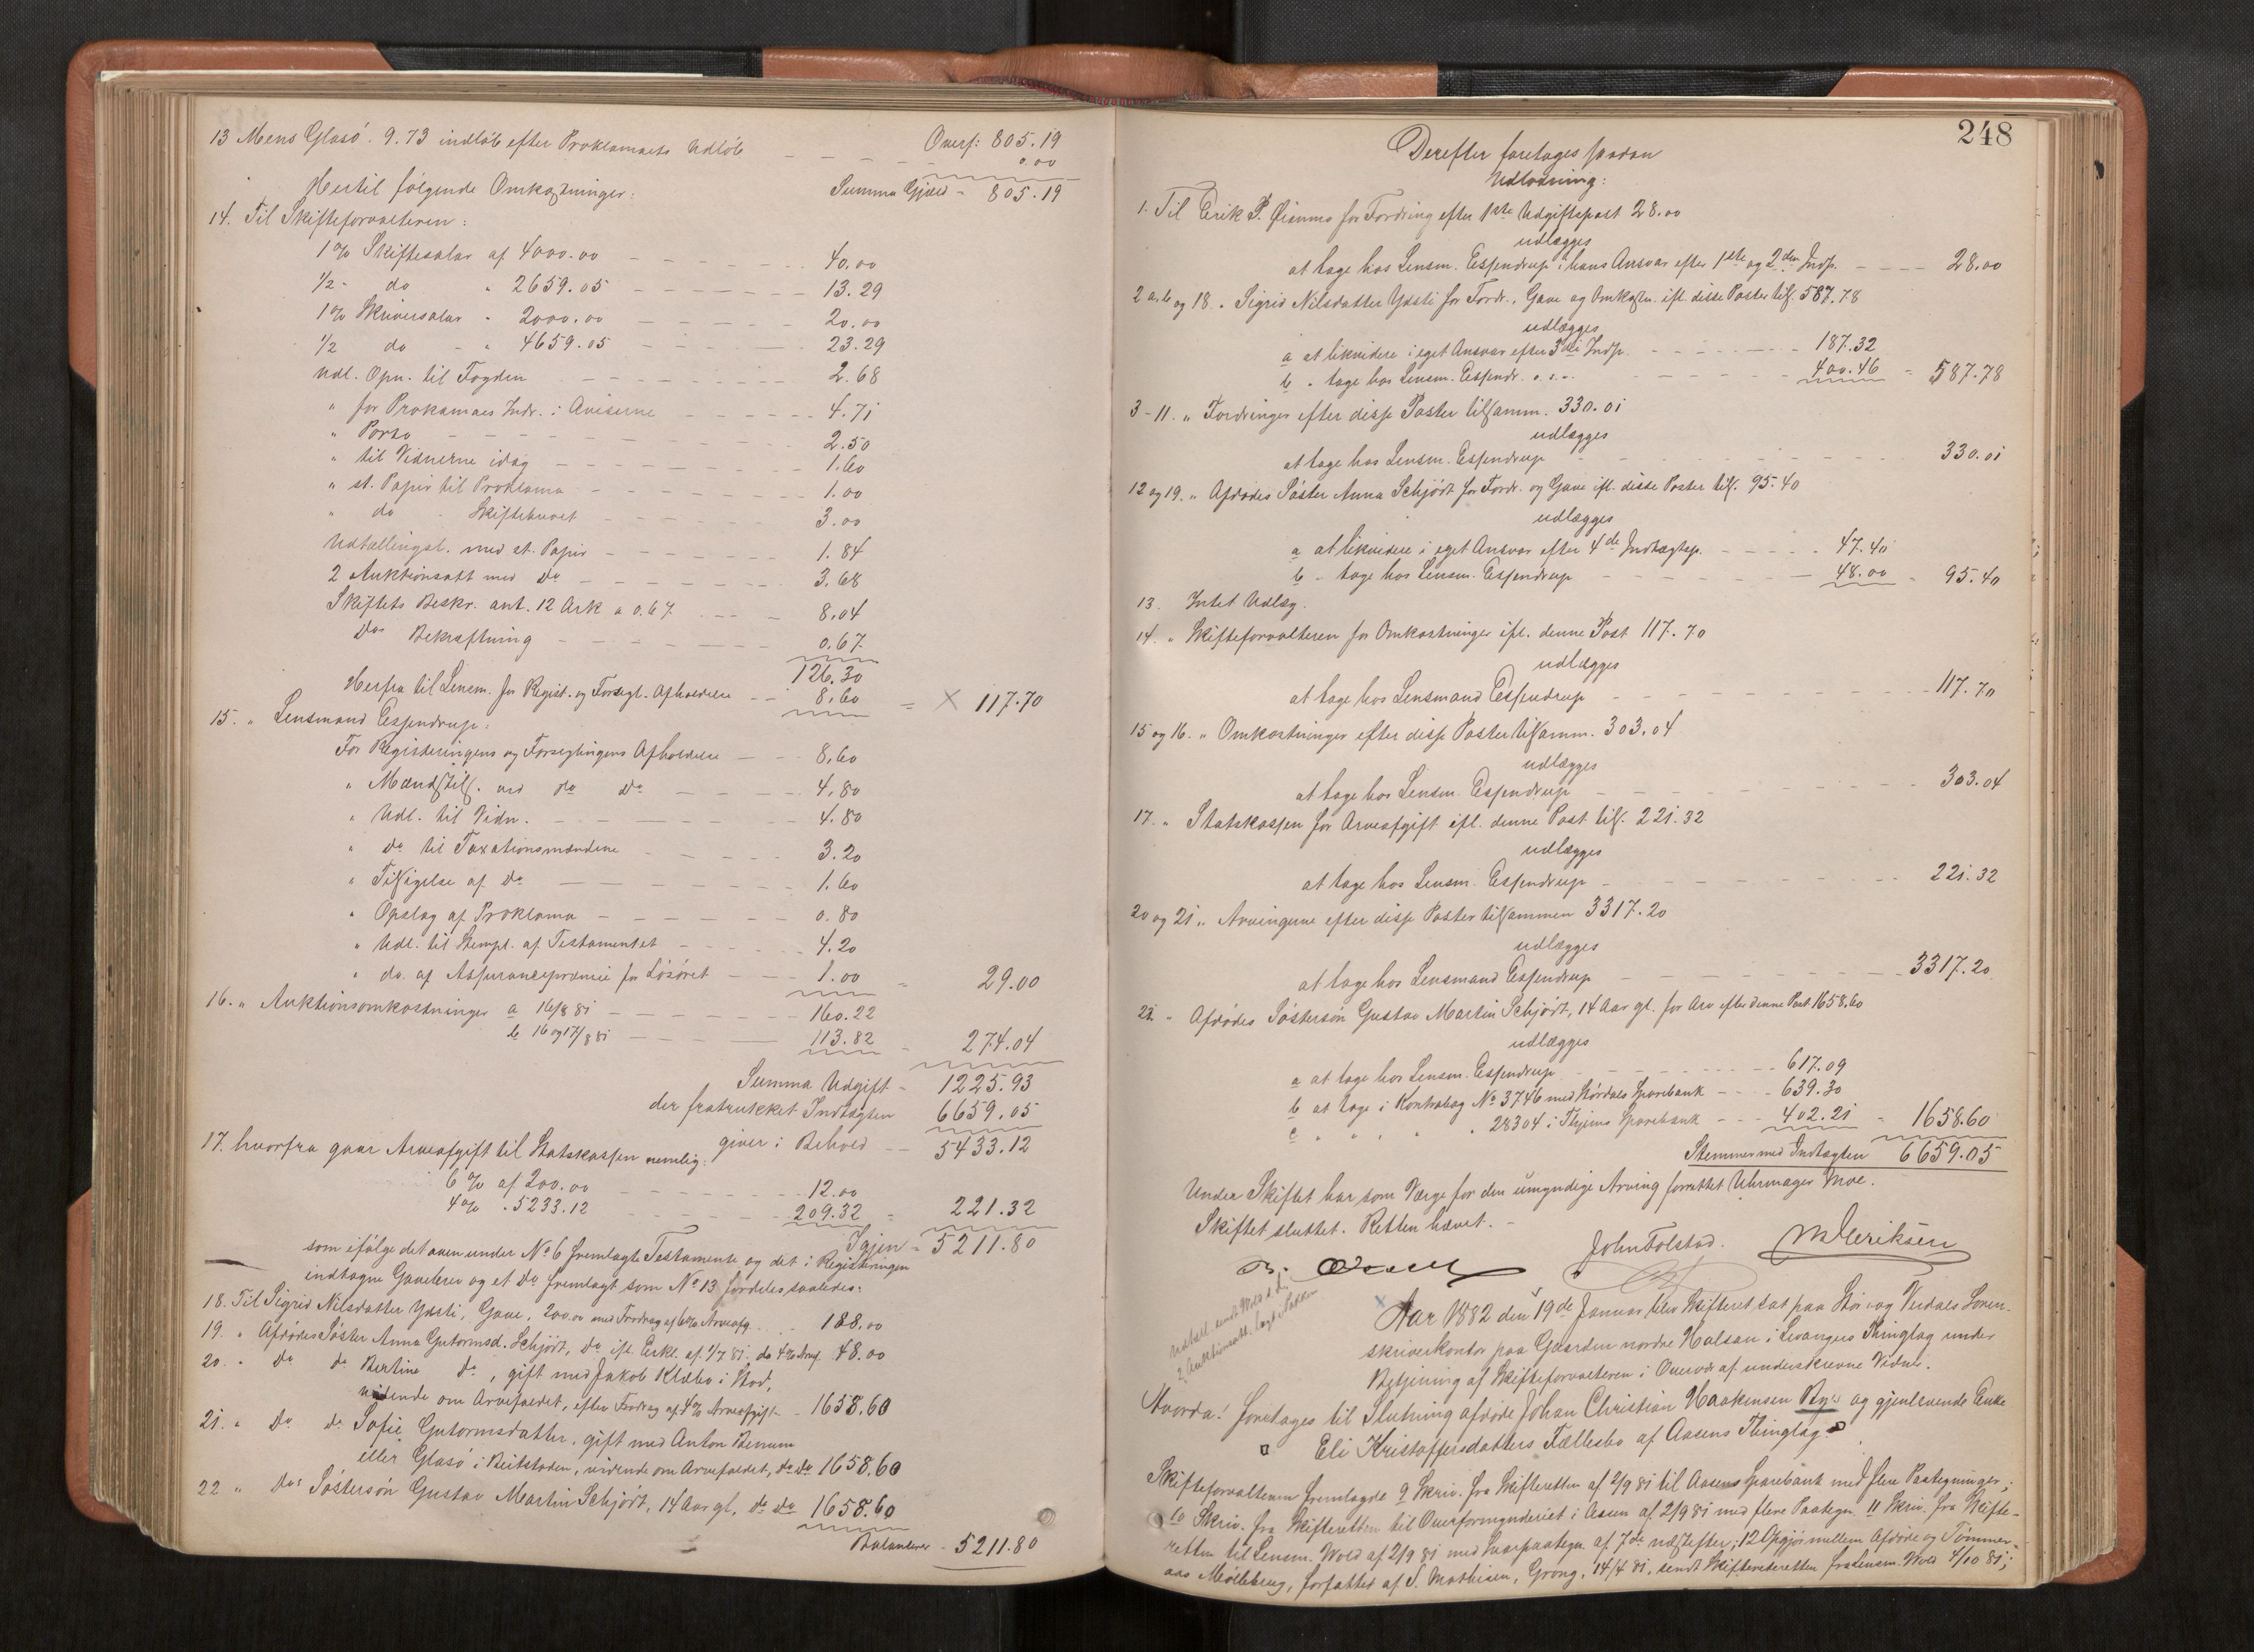 13 Mens Glasö. 9.73 indløb efter Proklamaets Udløb — — — — Overf: 805.19
0.00
Summa Gjæld - 805.19
Hertil følgende Omkostninger:
14. Til Skifteforvalteren:
1% Skiftesalar af 4000.00 — — — — 40.00
1/2 - do " 2659.05 — — — — 13.29
1% Skriversalar " 2000.00 — — — — 20.00
1/2 do - " 4659.05 — — — — 23.29
Udl. Opn. til Fogden — — — — 2.68
" for Proklamaes Indr. i Aviserne — — — — 4.71
" Porto — — — — 2.50
" til Vidnerne idag — — — — 1.60
" st. Papir til Proklama — — — — 1.00
" do - Skiftebrevet — — — — 3.00
Udtællingsl. med st. Papir — — — — 1.84
2 Auktionsatt med Do — — — — 3.68
Skiftets Beskr. ant. 12 Ark a 0.67 — — — 8.04
Dos Bekræftning — — — — 0.67
126.30
Herfra til Lensm. for Regist. og Forsegl. Afholdelse — 8.60 = X 117.70
15. " Lensmand Espendrup:
For Registeringens og Forseglingens Afholdelse — 8.60
" Mænds Tils. ved do Do — — — 4.80
" Udl. til Vidn. — — — — 4.80
" do til Taxationsmændene — — — — 3.20
" Tilsigelse af Do — — — — 1.60
" Opslag af Proklama — — — — 0.80
" Udl. til Stempl. af Testamentet — — — 4.20
" do. af Assurancepræmie for Løsøret — — 1.00 = 29.00
16. " Auktionsomkostninger a 16/8 81 — — — — 160.22
b 16 og 17/8 81 — — — — 113.82 - 274.04
Summa Udgift - 1225.93
der fratrukket Indtægten 6659.05
giver i Behold — 5433.12
17. hvorfra gaar Arveafgift til Statskassen nemlig:
6% af 200.00 — — — — 12.00
4% . 5233.12 — — — — 209.32 = 221.32
Igjen = 5211.80
som ifølge det oven under No 6 fremlagte Testamente og det i Registeringen
indtagne Gavebrev og et Do fremlagt som No 13 fordeles saaledes:
18. Til Sigrid Nilsdatter Ydsti, Gave, 200.00 med Fradrag af 6% Arveafg. - 188.00
19. " Afdødes Søster Anna Gutormsd. Schjödt, Do ifl. Erkl. af 1/7 81. do 4% Arvf. 48.00
20. " Do do Bertine Do, gift med Jakob Klæbo i Stod,
vidende om Arvefaldet, efter Fradrag af 4% Arveafgift - 1658.60
21. " Do do Sofie Gutormsdatter, gift med Anton Benum
eller Glasö i Beitstaden, vidende om Arvefaldet, Do Do 1658.60
22 " Dos Søstersøn Gustav Martin Schjødt, 14 Aar gl, do do 1658.60
Balancerer - 5211.80
248
Derefter foretoges saadan
Udlodning:
1. Til Erik P. Øiemmo for Fordring efter 1ste Udgiftspost 28.00
udlægges
at tage hos Lensm. Espendrup i hans Ansvar efter 1ste og 2den Indp. — — — 28.00
2 a, b og 18. " Sigrid Nilsdatter Ydsti for Fordr., Gave og Omkostn. ifl. disse Poster tils. 587.78
udlægges
a at likvidere i eget Ansvar efter 3die Indp. — — — — 187.32
b - tage hos Lensm. Espendr. — — — — 400.46 = 587.78
3-11. " Fordringer efter disse Poster tilsamm. 330.01
udlægges
at tage hos Lensm. Espendrup — — — — 330.01
12 og 19. " Afdødes Søster Anna Schjödt for Fordr. og Gave ifl. disse Poster tils. 95.40
udlægges
a at likvidere i eget Ansvar efter 4de Indtægtsp. — — — 47.40
b - tage hos Lensm. Espendrup — — — — 48.00 - 95.40
13. Intet Udlæg.
14. " Skifteforvalteren for Omkostninger ifl. denne Post 117.70
udlægges
at tage hos Lensmand Espendrup — — — — 117.70
15 og 16. " Omkostninger efter disse Poster tilsamm. 303.04
udlægges
at tage hos Lensm. Espendrup — — — — 303.04
17. " Statskassen for Arveafgift ifl. denne Post tils. 221.32
udlægges
at tage hos Lensm. Espendrup — — — — 221.32
20 og 21. " Arvingerne efter disse Poster tilsammen 3317.20
udlægges
at tage hos Lensmand Espendrup — — — — 3317.20
22 " Afdødes Søstersøn Gustav Martin Schjødt, 14 Aar gl. for Arv efter denne Post 1658.60
udlægges
a at tage hos Lensm. Espendrup — — — — 617.09
b at tage i Kontrabog No 3746 med Størdals Sparebank — — 639.30
c " " " " 28304 i Thjems Sparebank — — 402.21 = 1658.60
Stemmer med Indtægten 6659.05
Under Skiftet har som Værge for den umyndige Arving forrettet Uhrmager Moe.
Skiftet sluttet. Retten hævet. -
John Tolstad. M. Eriksen
Udtæll. sendt Wold d.d.
2 Auktionsatt. lagt i Pakken
Aar 1882 den 19de Januar blev Skifteret sat paa Stør- og Verdals Soren-
skriverkontor paa Gaarden nordre Halsan i Levangers Thinglag under
Betjening af Skifteforvalteren i Overvær af underskrevne Vidner.
Hvorda! foretoges til Slutning afdøde Johan Christian Haakensen Ryes og gjenlevende Enke
Eli Kristoffersdatters Fællesbo af Aasens Thinglag.
Skifteforvalteren fremlagde 9 Skriv. fra Skifteretten af 2/9 81 til Aasens Sparebank med flere Paategninger;
10 Skriv. fra Skifteretten til Overformynderiet i Aasen af 2/9 81 med flere Paategn. 11 Skriv. fra Skifte-
retten til Lensm. Wold af 2/9 81 med Svarpaategn af 7de næstefter; 12 Opgjør mellem Afdøde og Tømmer-
aas Møllebrug, forfattet af S. Mathisen, Grong, 14/4 81, sendt Skifteretten fra Lensm. Wold 4/10 81;